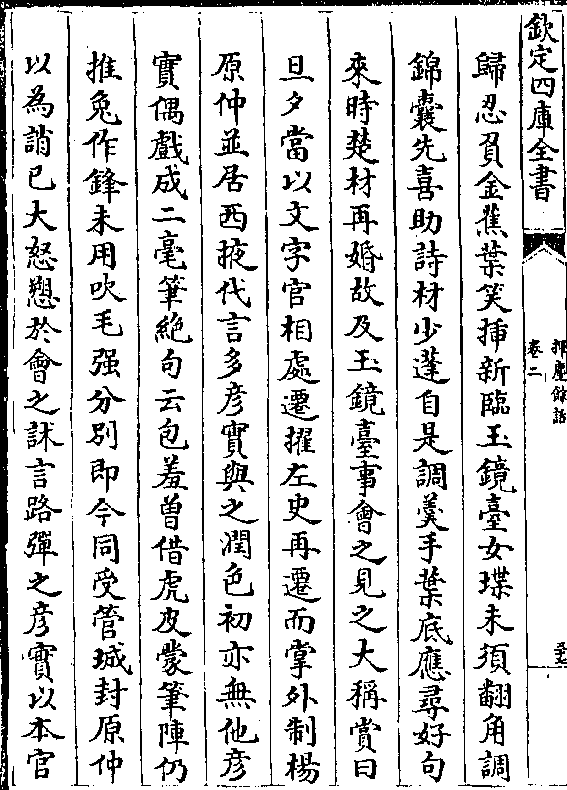 欽定四庫全書
揮麈餘話
卷二
歸忍負金蕉葉笑揷新臨玉鏡臺女堞未須翻角調
錦囊先喜助詩材少蓬自是調羮手葉底應尋好句
來時楚材再婚故及玉鏡臺事會之見之大稱賞曰
旦夕當以文字官相處遷擢左史再遷而掌外制楊
原仲並居西掖代言多彦實與之潤色初亦無他彦
實偶戲成二毫筆絶句云包羞曽借虎皮蒙筆陣仍
推兔作鋒未用吹毛强分别即今同受管城封原仲
以為誚已大怒愬於會之訹言路彈之彦實以本官